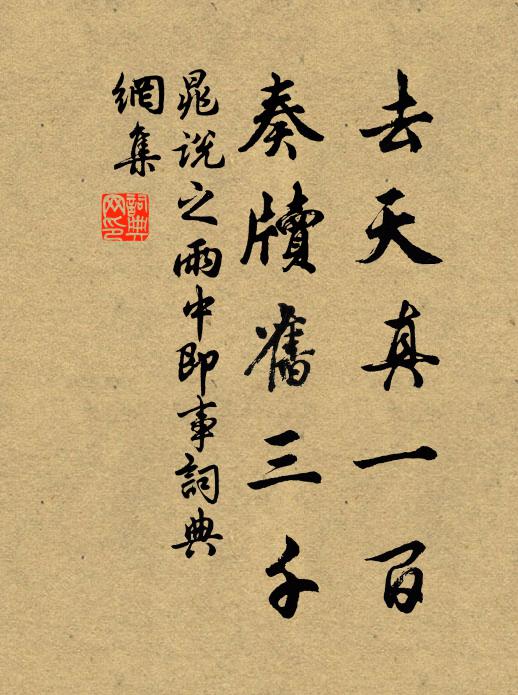 去天真一百
奏牘舊三千
晁說之雨中即事詞典
網集
詞典網印